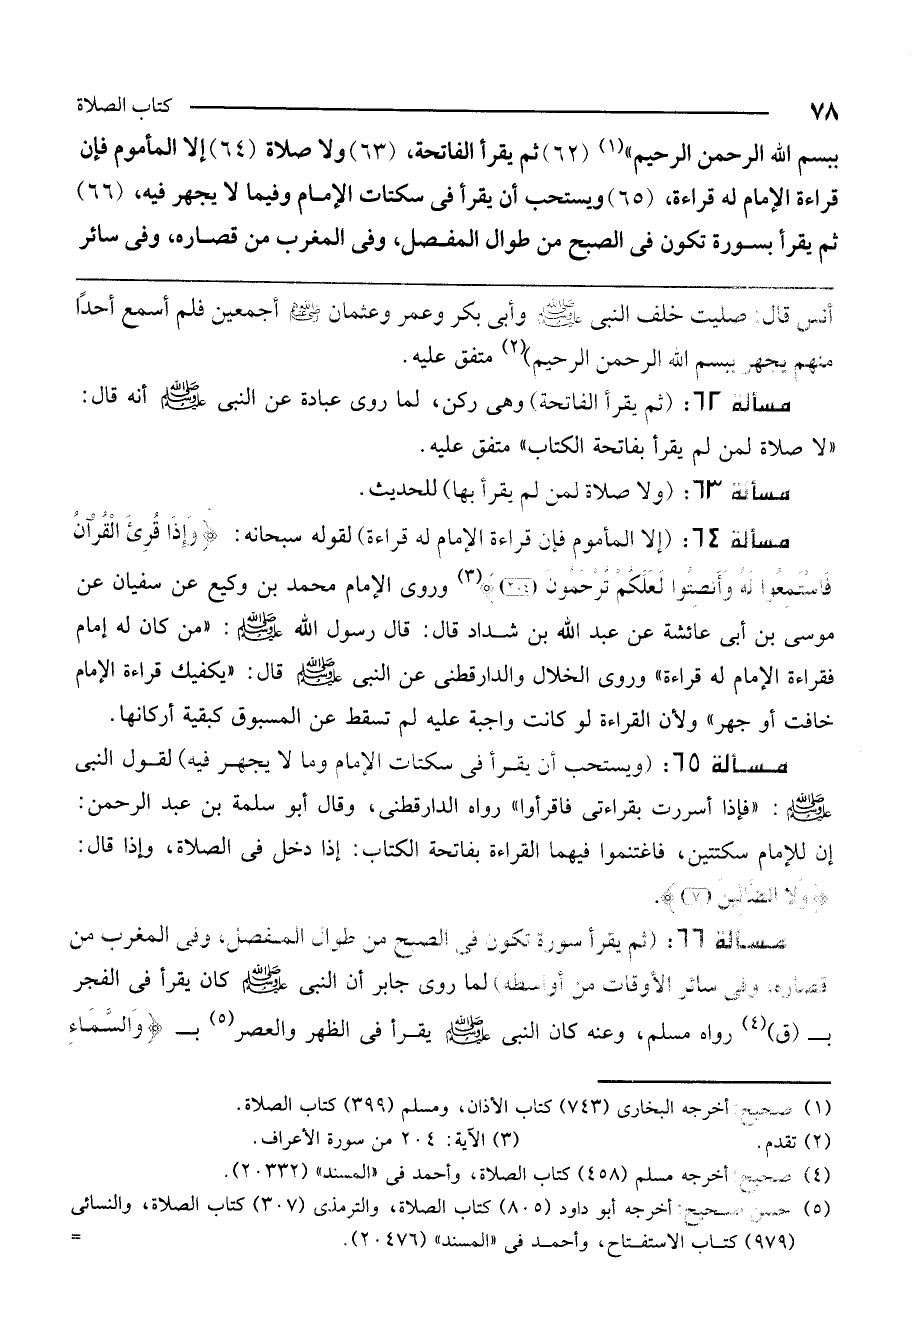 ٧٨ كتاب الصلاة
ببسم الله الرحمن الرحيم»(١) (٦٢) ثم يقرأ الفاتحة، (٦٣) ولا صلاة (٦٤) إلا المأموم فإن
قراءة الإمام له قراءة، (٦٥) ويستحب أن يقرأ فى سكتات الإمام وفيما لا يجهر فيه، (٦٦)
ثم يقرأ بسورة تكون فى الصبح من طوال المفصل، وفى المغرب من قصاره، وفى سائر
أنس قال: صليت خلف النبى ﷺ وأبى بكر وعمر وعثمان أجمعين فلم أسمع أحدًا
منهم يجهر ببسم الله الرحمن الرحيم)(٢) متفق عليه.
مسألة ٦٢: (ثم يقرأ الفاتحة) وهى ركن، لما روى عبادة عن النبى ﷺ أنه قال:
«لا صلاة لمن لم يقرأ بفاتحة الكتاب» متفق عليه.
مسألة ٦٣: (ولا صلاة لمن لم يقرأ بها) للحديث.
مسألة ٦٤: (إلا المأموم فإن قراءة الإمام له قراءة) لقوله سبحانه: ﴿وَإِذَا قُرِئَ الْقُرْآنُ
فَاسْتَمِعُوا لَهُ وَأَنصِتُوا لَعَلَّكُمْ تُرْحَمُونَ (٢٠٤)﴾(٣) وروى الإمام محمد بن وكيع عن سفيان عن
موسى بن أبى عائشة عن عبد الله بن شداد قال: قال رسول الله ﷺ: «من كان له إمام
فقراءة الإمام له قراءة» وروى الخلال والدارقطنى عن النبى ﷺ قال: «يكفيك قراءة الإمام
خافت أو جهر» ولأن القراءة لو كانت واجبة عليه لم تسقط عن المسبوق كبقية أركانها.
مسألة ٦٥: (ويستحب أن يقرأ فى سكتات الإمام وما لا يجهر فيه) لقول النبى
ﷺ: «فإذا أسررت بقراءتى فاقرأوا» رواه الدارقطنى، وقال أبو سلمة بن عبد الرحمن:
إن للإمام سكتتين، فاغتنموا فيهما القراءة بفاتحة الكتاب: إذا دخل فى الصلاة، وإذا قال:
﴿وَلا الضَّالِّينَ (٧)﴾.
مسألة ٦٦: (ثم يقرأ سورة تكون فى الصبح من طوال المفصل، وفى المغرب من
قصاره، وفى سائر الأوقات من أواسطه) لما روى جابر أن النبى ﷺ كان يقرأ فى الفجر
بـ (ق)(٤) رواه مسلم، وعنه كان النبى ﷺ يقرأ فى الظهر والعصر(٥) بـ ﴿وَالسَّمَاءِ
(١) صحيح: أخرجه البخارى (٧٤٣) كتاب الأذان، ومسلم (٣٩٩) كتاب الصلاة.
(٢) تقدم. (٣) الآية: ٢٠٤ من سورة الأعراف.
(٤) صحيح: أخرجه مسلم (٤٥٨) كتاب الصلاة، وأحمد فى «المسند» (٢٠٣٣٢).
(٥) حسن صحيح: أخرجه أبو داود (٨٠٥) كتاب الصلاة، والترمذى (٣٠٧) كتاب الصلاة، والنسائى
(٩٧٩) كتاب الاستفتاح، وأحمد فى «المسند» (٢٠٤٧٦). =